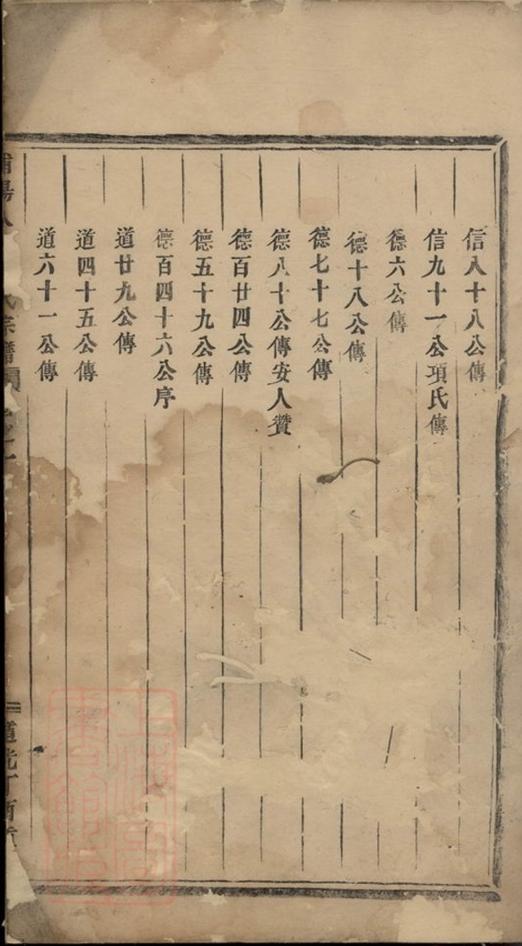 信八十八公傳
信九十一公項氏傳
德六公傳
德十八公傳
德七十七公傳
德八十公傳安人贊
德百廿四公傳
德五十九公傳
德百四十六公序
道廿九公傳
道四十五公傳
道六十一公傳
宗譜
道光丁酉